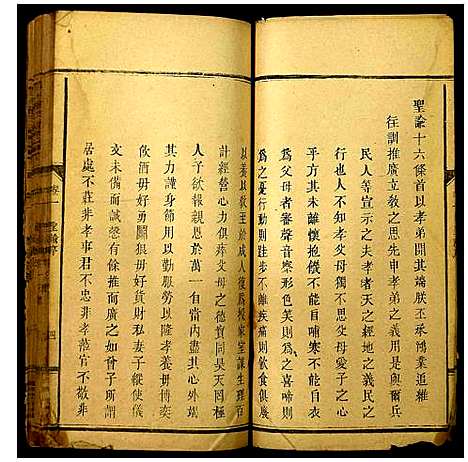 聖諭十六條首以孝弟開其端朕丕承鴻業追維
徃訓推廣立敎之思先申孝弟之義用是與爾兵
民人等宣示之夫孝者天之經地之義民之
行也人不知孝父母獨不思父母愛子之心
乎方其未離懷抱饑不能自哺寒不能自衣
爲父母者審聲音察形色笑則爲之喜啼則
爲之憂行動則跬步不離疾痛則寢食俱廢
以養以敎至於成人復爲授家室謀生理百
計經營心力俱瘁父母之德實同昊天罔極
人子欲報親恩於萬一自當內盡其心外竭
其力謹身節用以勤服勞以隆孝養毋博奕
飮酒毋好勇鬪狠毋好貨財私妻子縱使儀
文未備而誠愨有餘推而廣之如曾子所謂
居處不莊非孝事君不忠非孝蒞官不敬非
聖諭
四